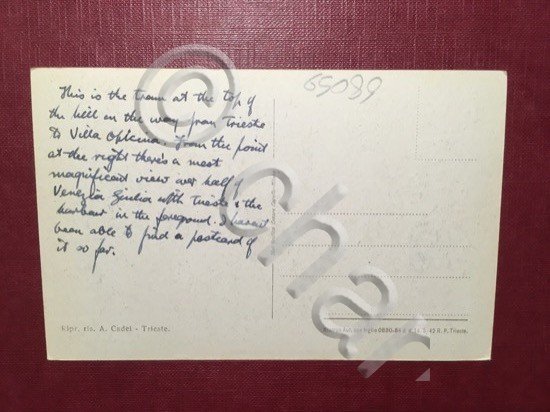 65089
This is the tram at the top of
the hill on the way from Trieste
to Villa Opicina. From the point
at the right there's a most
magnificent view over half
Venezia Giulia with Trieste & the
harbour in the foreground. I haven't
been able to find a postcard of
it so far.
Ripr. ris. A. Cadel - Trieste.
© char